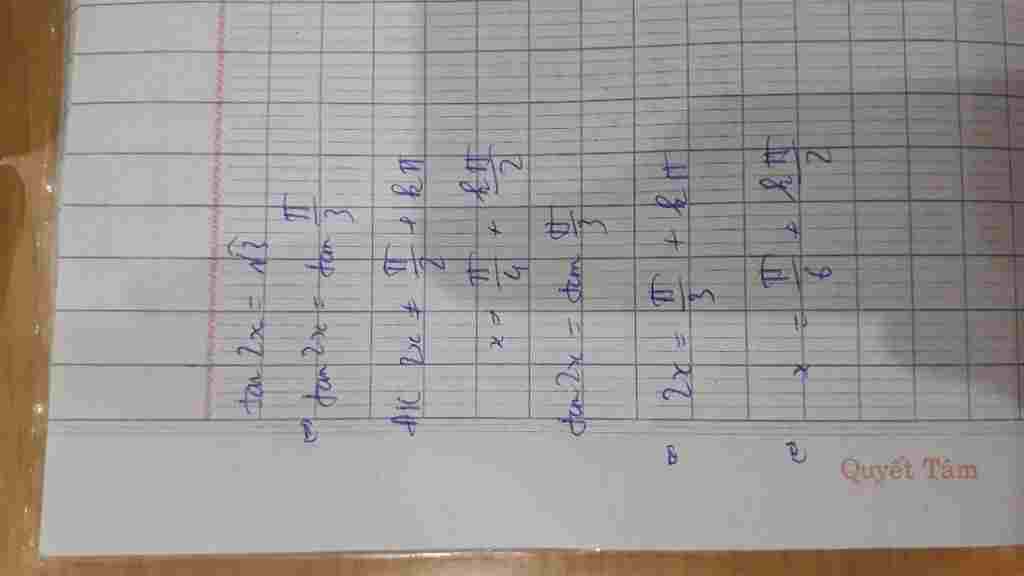 tan 2x = √3
⇔ tan 2x = tan π/3
ĐK 2x ≠ π/2 + kπ
x = π/4 + kπ/2
tan 2x = tan π/3
⇔ 2x = π/3 + kπ
⇔ x = π/6 + kπ/2
Quyết Tâm